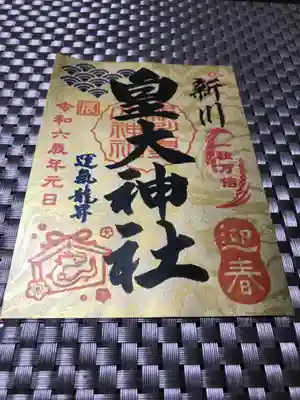 新川
皇大神社
運氣龍昇
令和六辰年元日
迎春